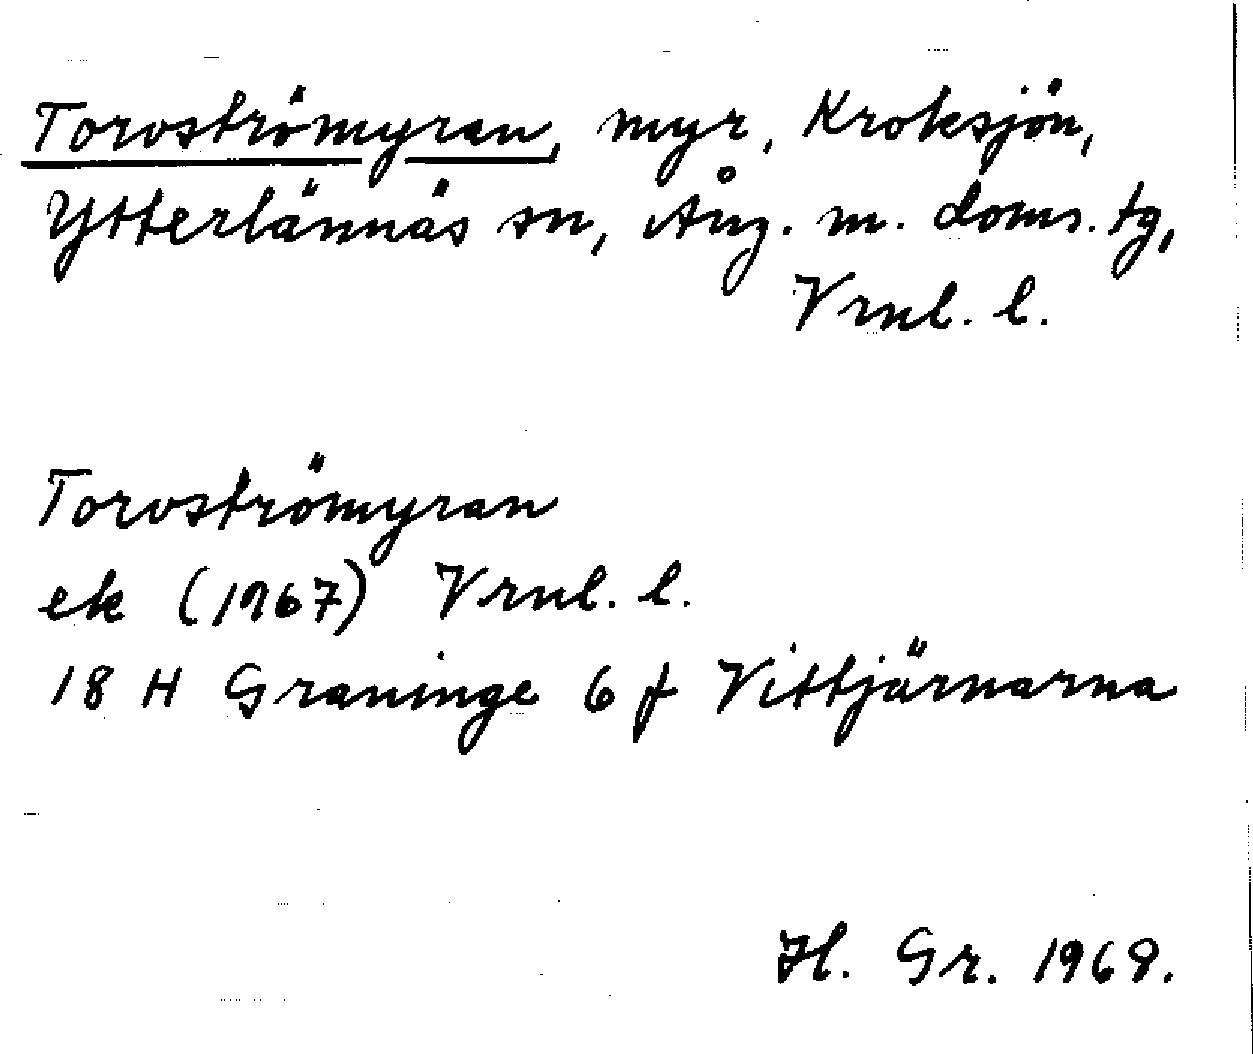 Torvströmyran, myr, Kroksjön,
Ytterlännäs sn, Ång. m. doms. tg,
Vrnl. l.
Torvströmyran
ek (1967) Vrnl. l.
18 H Graninge 6 f Vittjärnarna
Hl. Gr. 1969.